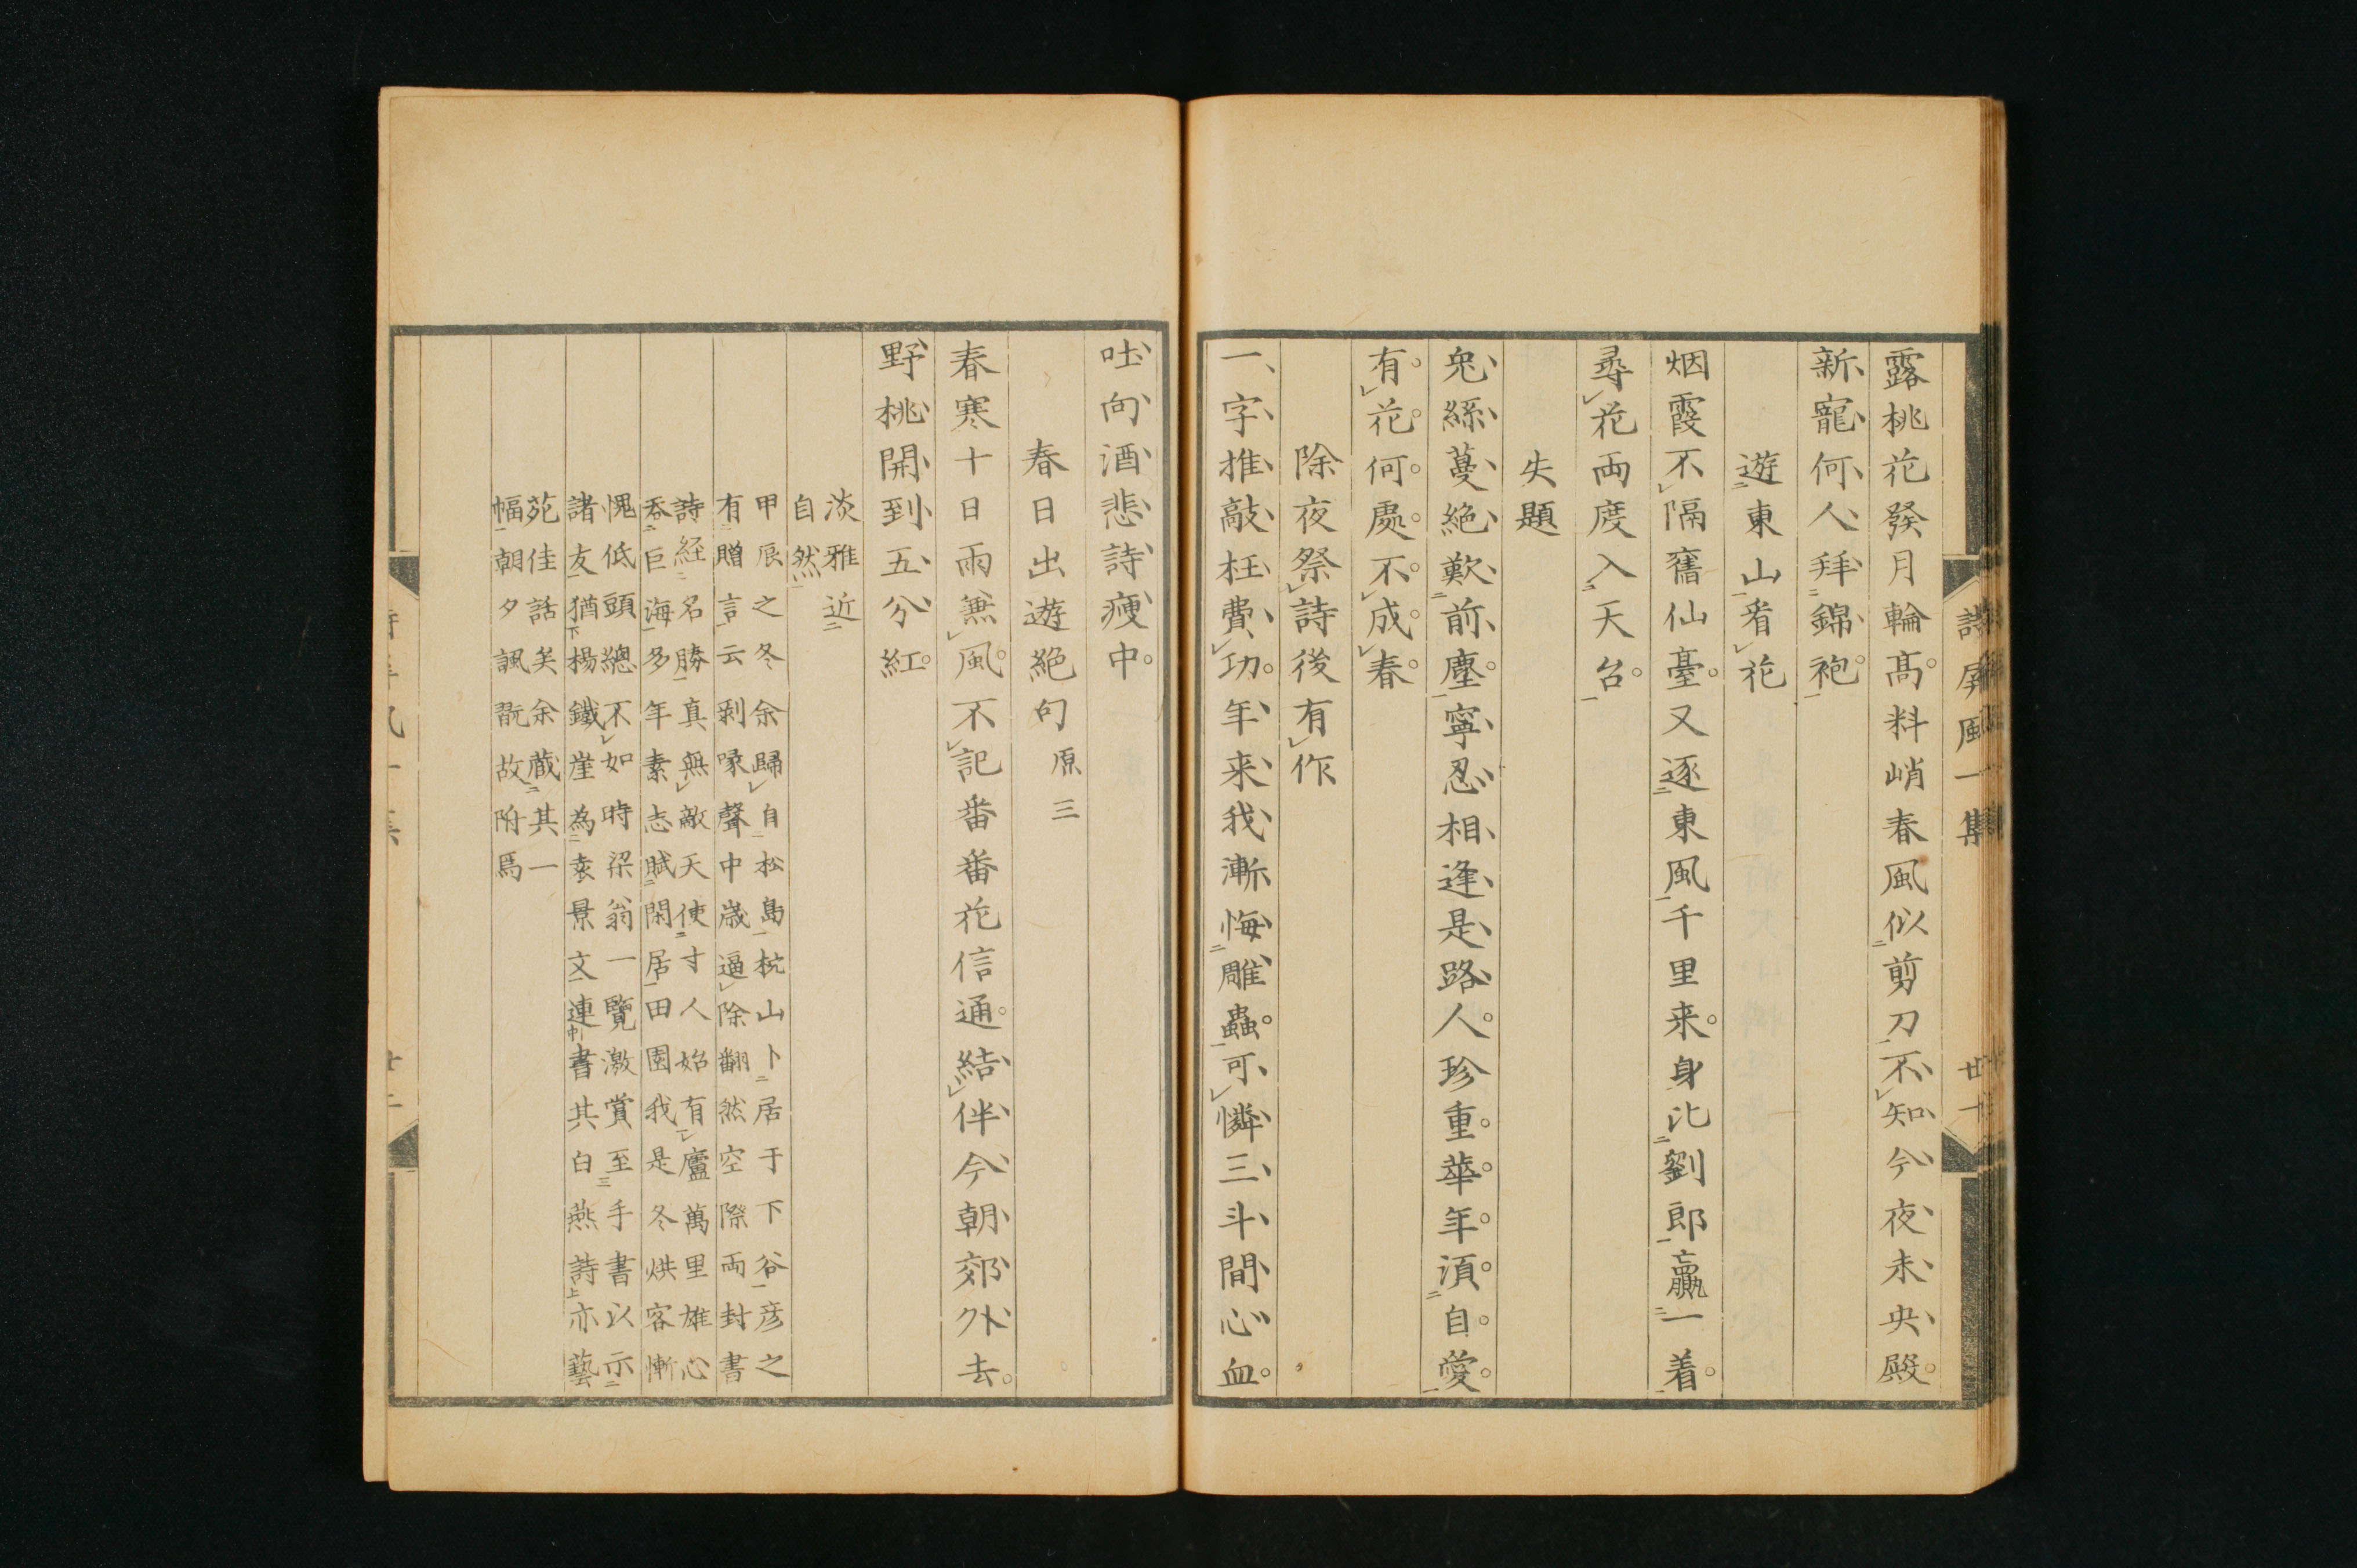 詩屏風一集
廿一
露桃花發月輪高料峭春風似剪刀不知今夜未央殿
新寵何人拜錦袍
遊東山看花
烟霞不隔舊仙臺又逐東風千里来身比劉郎贏一着
尋花両度入天台
失題
兔絲蔓絶歎前塵寧忍相逢是路人珍重華年須自愛
有花何處不成春
除夜祭詩後有作
一字推敲枉費功年来我漸悔雕蟲可憐三斗間心血
吐向酒悲詩瘦中
春日出遊絶句 原三
春寒十日雨兼風不記番番花信通結伴今朝郊外去
野桃開到五分紅
淡雅近
自然
甲辰之冬余歸自松島梡山卜居于下谷彦之
有贈言云剥喙聲中歳逼除翻然空際両封書
詩経名勝真無敵天使寸人始有廬萬里雄心
呑巨海多年素志賦閑居田園我是冬烘客慚
愧低頭總不如時梁翁一覽激賞至手書以示
諸友猶楊鐵崖為袁景文連書其白燕詩亦藝
苑佳話矣余蔵其一
幅朝夕諷翫故附焉